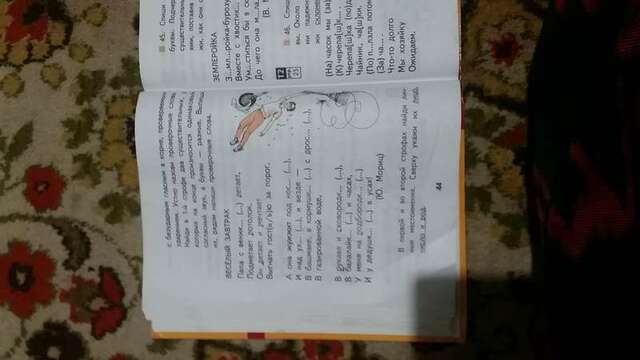 с безударным гласным в корне, проверяемым
ударением. Устно назови проверочные слова.
Найди в 1-й строфе два существительных, в
которых на конце произносится одинаковый
согласный звук, а буквы — разные. Выпиши
их, рядом напиши проверочные слова.
ВЕСЁЛЫЙ ЗАВТРАК
Папа с веник... (...) летает,
Подметает потолок.
Он летает и мечтает
Выгнать гост(и/ь)ю за порог.
А она жужжит под нос... (...),
И над ух... (...), и везде —
В башмаке, в кормушк... (...) с дрос... (...),
В газированной воде,
В рукаве и сковородк... (...),
В балалайк... (...) и часах,
У меня на подбородк... (...)
И у дедушк... (...) в усах!
(Ю. Мориц)
В первой и во второй строфах найди лич-
ные местоимения. Сверху укажи их лицо,
число и род.
44
45. Спиши
буквы. Подчер
существительны
ями, поставив
жи, как они с
ЗЕМЛЕРОЙКА
З...мл...ройка-бурозу
Вместе с хвостик...
Ум...ститься бы в ск
До чего она м...ла.
(В.
Т2
РР
25
46. Спиш
вы. Около
ми падежн
жи склонен
(На) часок мы (за)
(К) черепа[ш]к...
Черепа[ш]ка (по)д
Чайник, ча[ш]ки.
(По) п...лзала потом
(За) ча... .
Что-то долго
Мы хозяйку
Ожидаем.